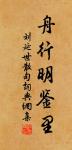 舟行明鉴里
刘沁世散句词典网集